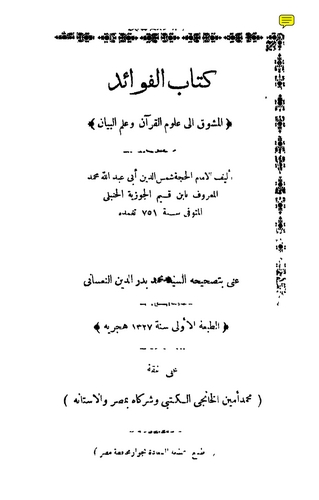 كتاب الفوائد
﴿ المشوق الى علوم القرآن وعلم البيان ﴾
تأليف الامام الحجة شمس الدين أبي عبد الله محمد
المعروف بابن قيم الجوزية الحنبلي
المتوفى سنة ٧٥١
عنى بتصحيحه السيد محمد بدر الدين النعساني
﴿ الطبعة الأولى سنة ١٣٢٧ هجريه ﴾
على نفقة
( محمد أمين الخانجي الكتبي وشركاه بمصر والاستانه )
( طبع بمطبعة السعادة بجوار محافظة مصر )